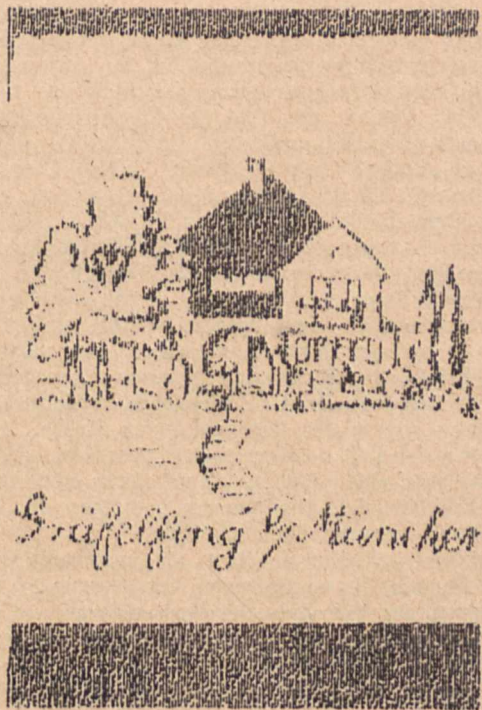 Gräfelfing b/München